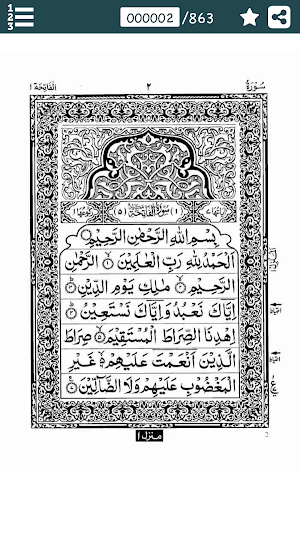 1
2
3
000002 /863
سُوْرَةُ ٢ اَلْفَاتِحَة ١
(١) سُوْرَةُ الْفَاتِحَةِ (٥)
بِسْمِ اللهِ الرَّحْمٰنِ الرَّحِيْمِ
اَلْحَمْدُ لِلّٰهِ رَبِّ الْعٰلَمِيْنَ ۙ﴿١﴾ الرَّحْمٰنِ
الرَّحِيْمِ ۙ﴿٢﴾ مٰلِكِ يَوْمِ الدِّيْنِ ؕ﴿٣﴾
اِيَّاكَ نَعْبُدُ وَاِيَّاكَ نَسْتَعِيْنُ ؕ﴿٤﴾
اِهْدِنَا الصِّرَاطَ الْمُسْتَقِيْمَ ۙ﴿٥﴾ صِرَاطَ
الَّذِيْنَ اَنْعَمْتَ عَلَيْهِمْ ۙ۬﴿٦﴾ غَيْرِ
الْمَغْضُوْبِ عَلَيْهِمْ وَلَا الضَّآلِّيْنَ ﴿٧﴾
منزل ١
2